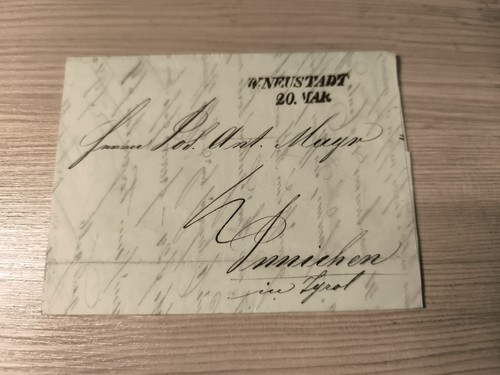 W.NEUSTADT
20. MAR
Herrn Jos. Ant. Mayr
Innichen
in Tyrol